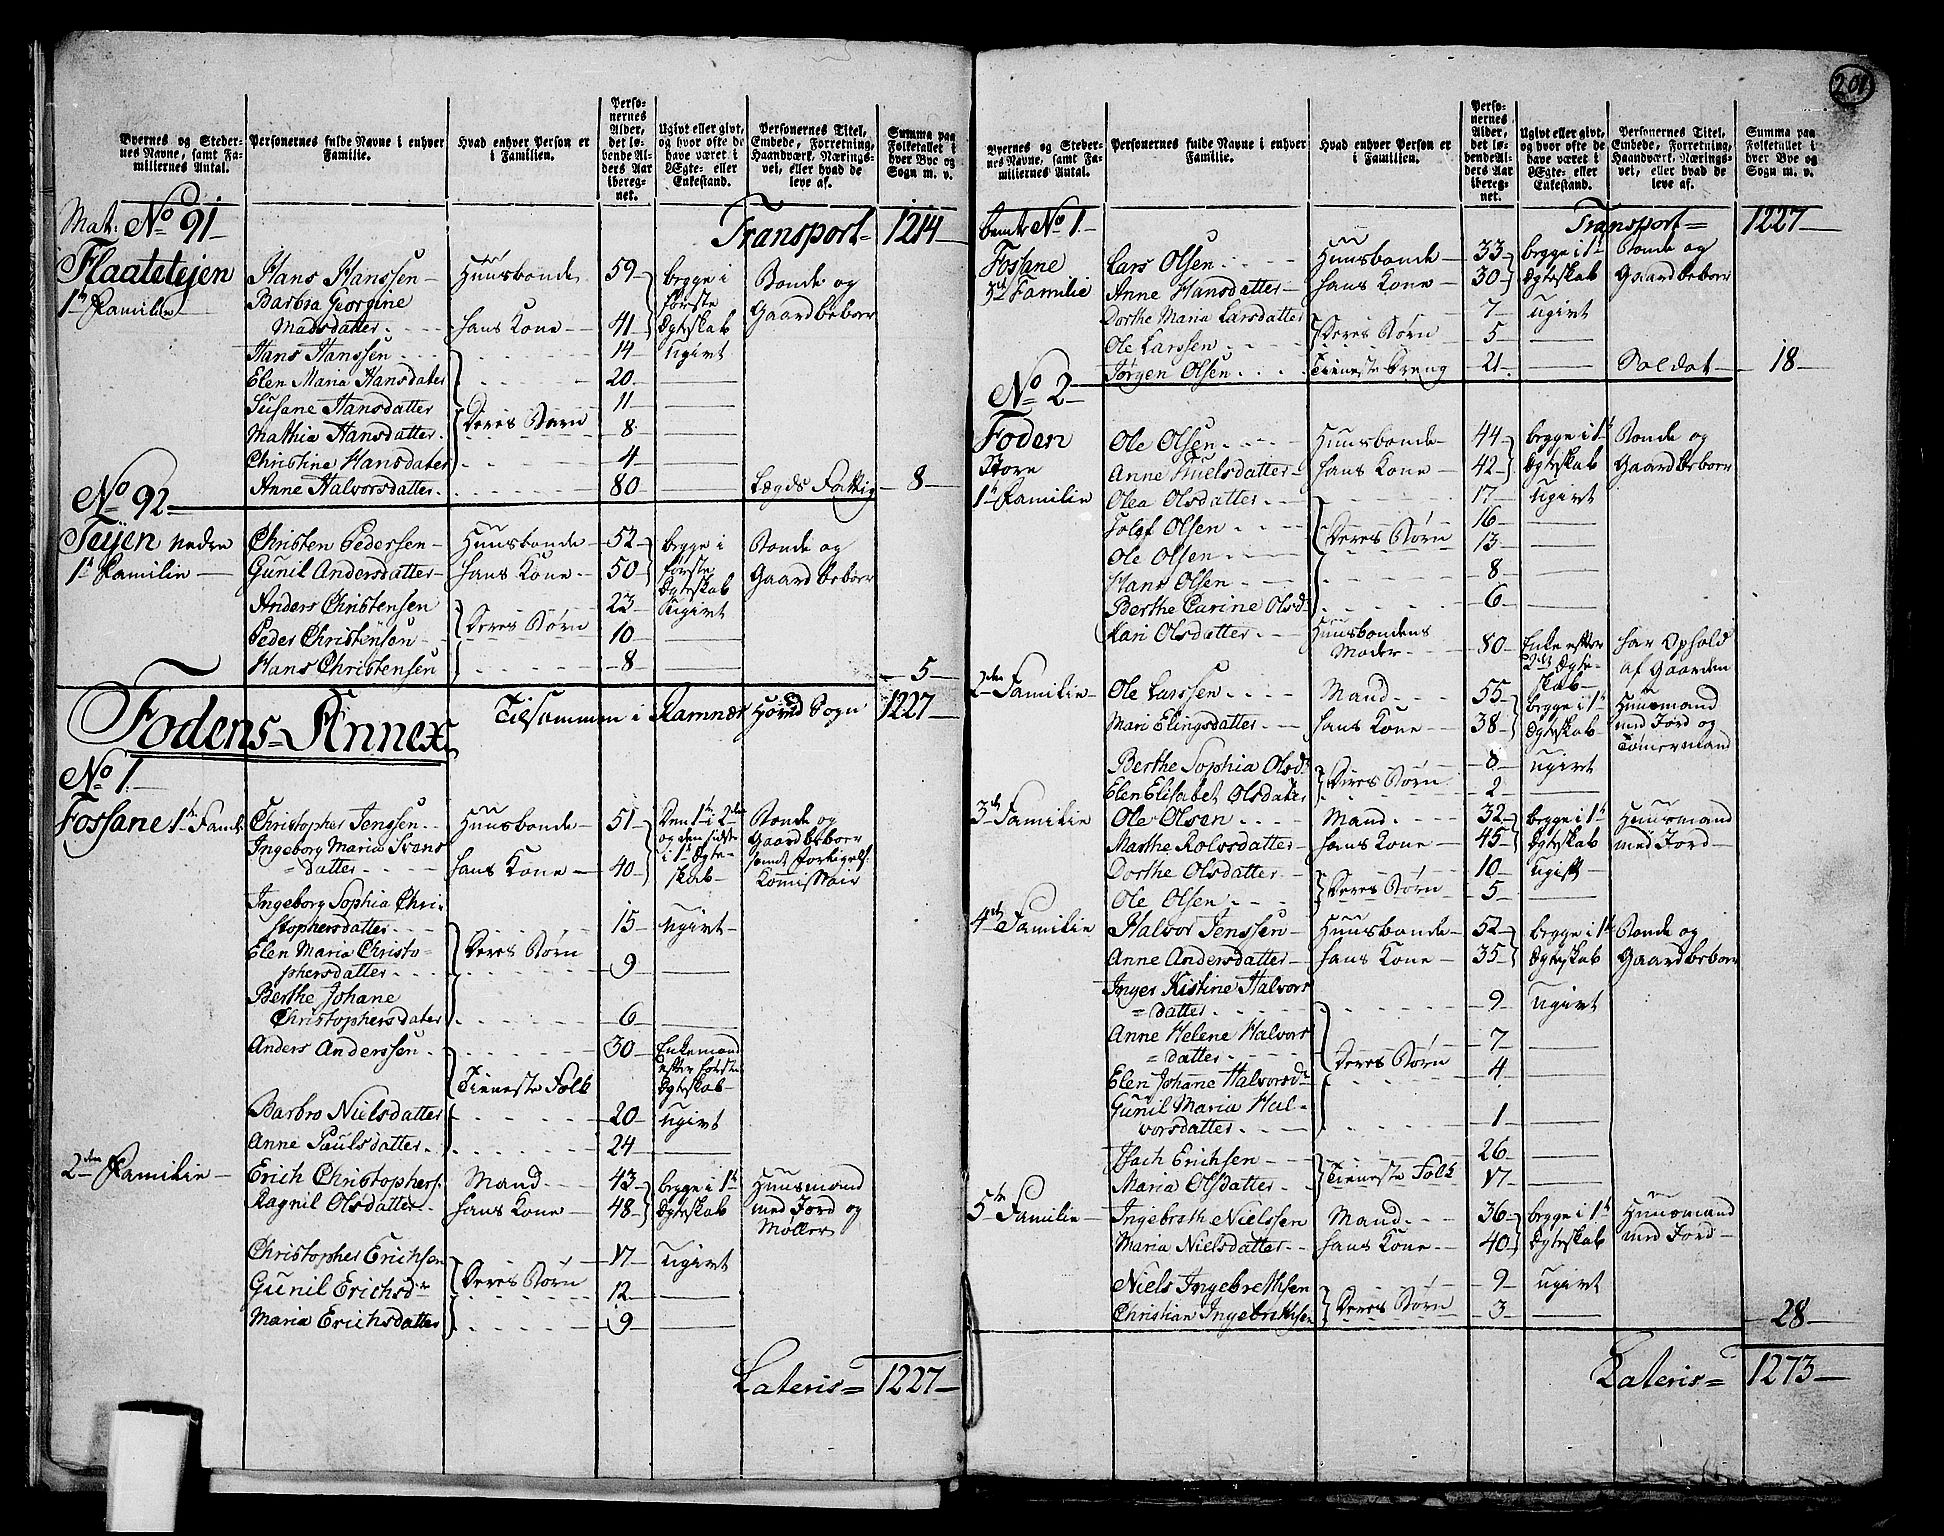 201.
Byernes og Stedernes Navne, samt Familiernes Antal. | Personernes fulde Navne i enhver Familie. | Hvad enhver Person er i Familien. | Personernes Alder, det løbende Alders Aar iberegnet. | Ugivt eller givt, og hvor ofte de have været i Ægte- eller Enkestand. | Personernes Titel, Embede, Forretning, Haandværk, Næringsvei, eller hvad de leve af. | Summa paa Folketallet i hver Bye og Sogn m. v.
Mat: No 91 Transport= 1214
Flaatetejen Hans Hanssen Huusbonde 59 begge i Bonde og
1te Familie Barbra Georgine første Gaardbeboer
Madsdatter hans Kone 41 Ægteskab
Hans Hanssen 14 ugivt
Elen Maria Hansdater 20
Susane Hansdatter 11
Mathia Hansdatter Deres Børn 8
Christine Hansdater 4
Anne Halvorsdatter 80 Lægds Fattig 8
No 92
Teijen nedre Christen Pedersen Huusbonde 52 begge i Bonde og
1te Familie Gunil Andersdatter hans Kone 50 første Gaardbeboer
Ægteskab
Anders Christensen 23 Ugivt
Peder Christensen Deres Børn 10
Hans Christensen 8 5
Fodens=Annex Tilsammen i Ramnæs Hoved Sogn 1227
No 1.
Fossane 1te Famil: Christopher Jenssen Huusbonde 51 Den 1te i 2den Bonde og
Ingeborg Maria Svens og den sidste Gaardbeboer
=datter hans Kone 40 i 1te Ægte= samt Forligels:
skab Kommissair
Ingeborg Sophia Chri=
stophersdatter 15 ugivt
Elen Maria Christo= Deres Børn
phersdatter 9
Berthe Johane
Christophersdater 6
Anders Anderssen 30 Enkemand
efter første
Tieneste Folk Ægteskab
Barbro Nielsdatter 20 ugivt
Anne Paulsdatter 24
2den Familie Erich Christophers: Mand 43 begge i 1te Huusmand
Ragnil Olsdatter hans Kone 48 Ægteskab med Jord og
Møller
Christopher Erichsen 17 Ugivt
Gunil Erichsdr Deres Børn 12
Maria Erichsdatter 9
Lateris= 1227
Byernes og Stedernes Navne, samt Familiernes Antal. | Personernes fulde Navne i enhver Familie. | Hvad enhver Person er i Familien. | Personernes Alder, det løbende Alders Aar iberegnet. | Ugivt eller givt, og hvor ofte de have været i Ægte- eller Enkestand. | Personernes Titel, Embede, Forretning, Haandværk, Næringsvei, eller hvad de leve af. | Summa paa Folketallet i hver Bye og Sogn m. v.
No 1. Transport= 1227
Fossane Lars Olsen Huusbonde 33 begge i 1te Bonde og
3die Familie Anne Hansdatter hans Kone 30 Ægteskab Gaardbeboer
Dorthe Maria Larsdatter 7 ugivt
Ole Larssen Deres Børn 5
Jørgen Olsen Tieneste Dreng 21 Soldat 18
No 2
Foden Ole Olsen Huusbonde 44 begge i 1te Bonde og
Store Anne hans Kone 42 Ægteskab Gaardbeboer
1te Familie Olea Olsdatter 17 ugivt
Olsen 16
Ole Olsen Deres Børn 13
Hans Olsen 8
Berthe Carine Olsd: 6
Kari Olsdatter Huusbondens 80 Enke efter har Ophold
Moder 2det Ægte= af Gaarden
skab
2den Familie Ole Larssen Mand 55 begge i 1te Huusmand
Mari Elingsdatter hans Kone 38 Ægteskab med Jord og
Tømermand
Berthe Sophia Olsd: 8 ugivt
Elen Elisabet Olsdater Deres Børn 2
3die Familie Ole Olsen Mand 32 begge i 1te Huusmand
Marthe Rolvsdatter hans Kone 45 Ægteskab med Jord
Dorthe Olsdatter 10 ugift
Ole Olsen Deres Børn 5
4de Familie Halvor Jenssen Huusbonde 52 begge i 1te Bonde og
Anne Andersdatter hans Kone 35 Ægteskab Gaardbeboer
Inger Kistine Halvors
=datter 9 Ugivt
Anne Helene Halvors
=datter 7
Elen Johane Halvorsdr Deres Børn 4
Gunil Maria Hal=
vorsdatter 1
Isach Erichsen 26
Maria Olsdatter Tieneste Folk 17
5te Familie Ingebreth Nielssen Mand 36 begge i 1te Huusmand
Maria Nielsdatter hans Kone 40 Ægteskab med Jord
Niels Ingebrethsen 9 ugivt
Christian Ingebrethsen Deres Børn 3 28
Lateris= 1273